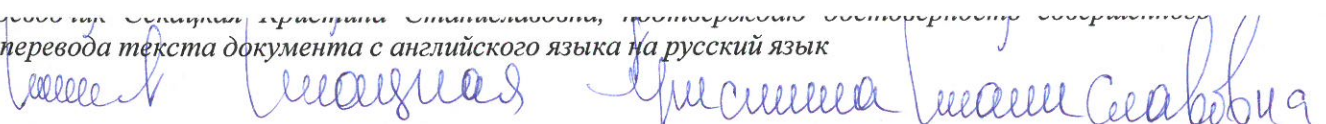 еводчик Секацкая Кристина Станиславовна, подтверждаю достоверность совершенного
перевода текста документа с английского языка на русский язык
Секацкая Кристина Станиславовна